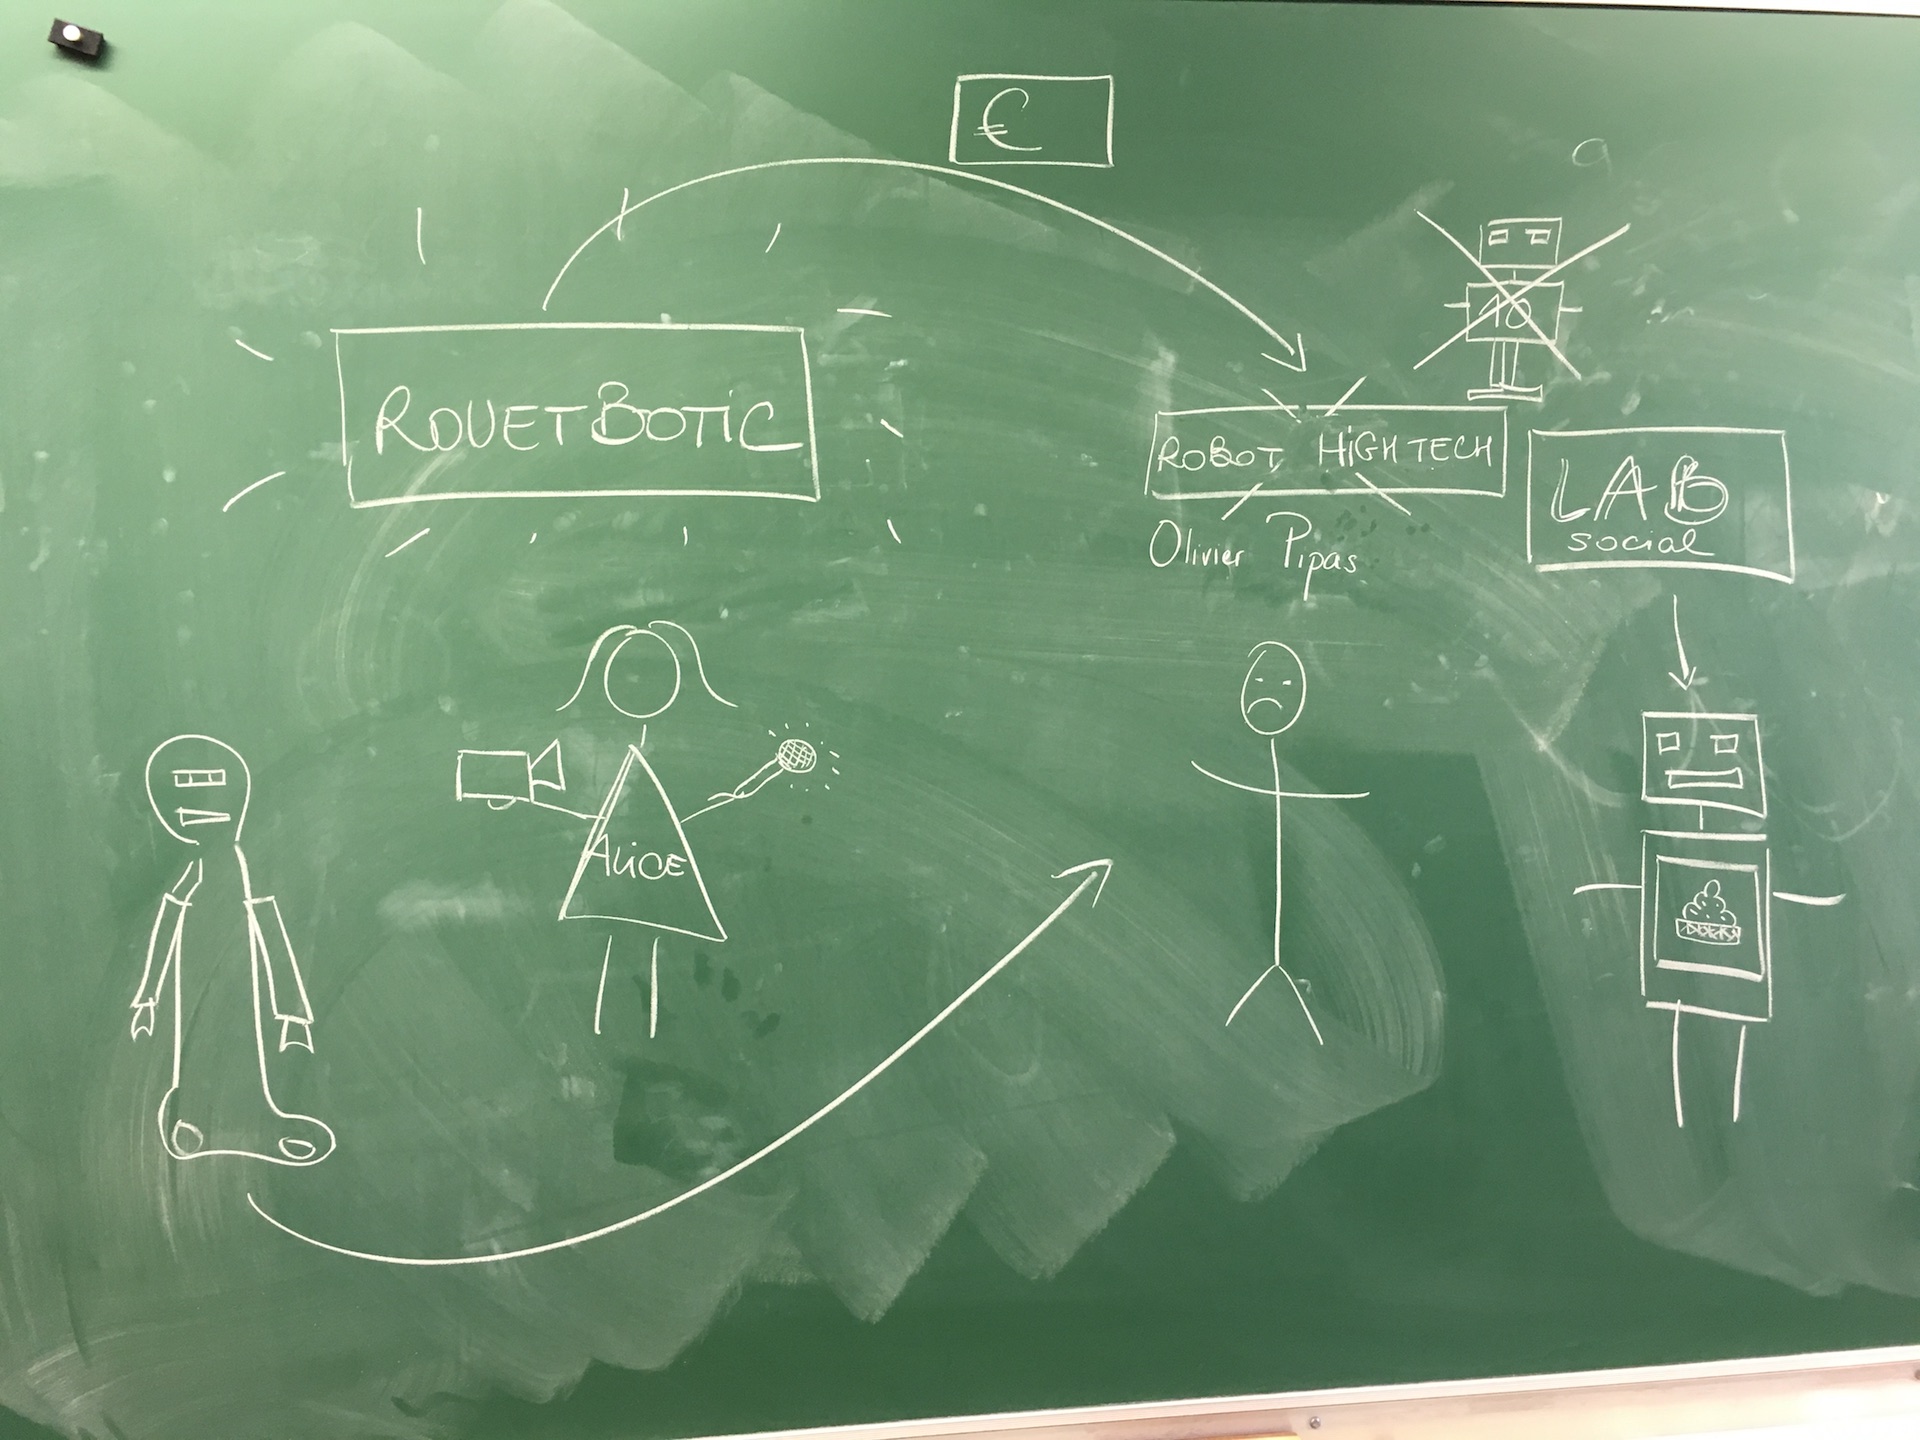 €
10
ROUETBOTIC
ROBOT HIGHTECH
Olivier Pipas
LAB
social
ALICE